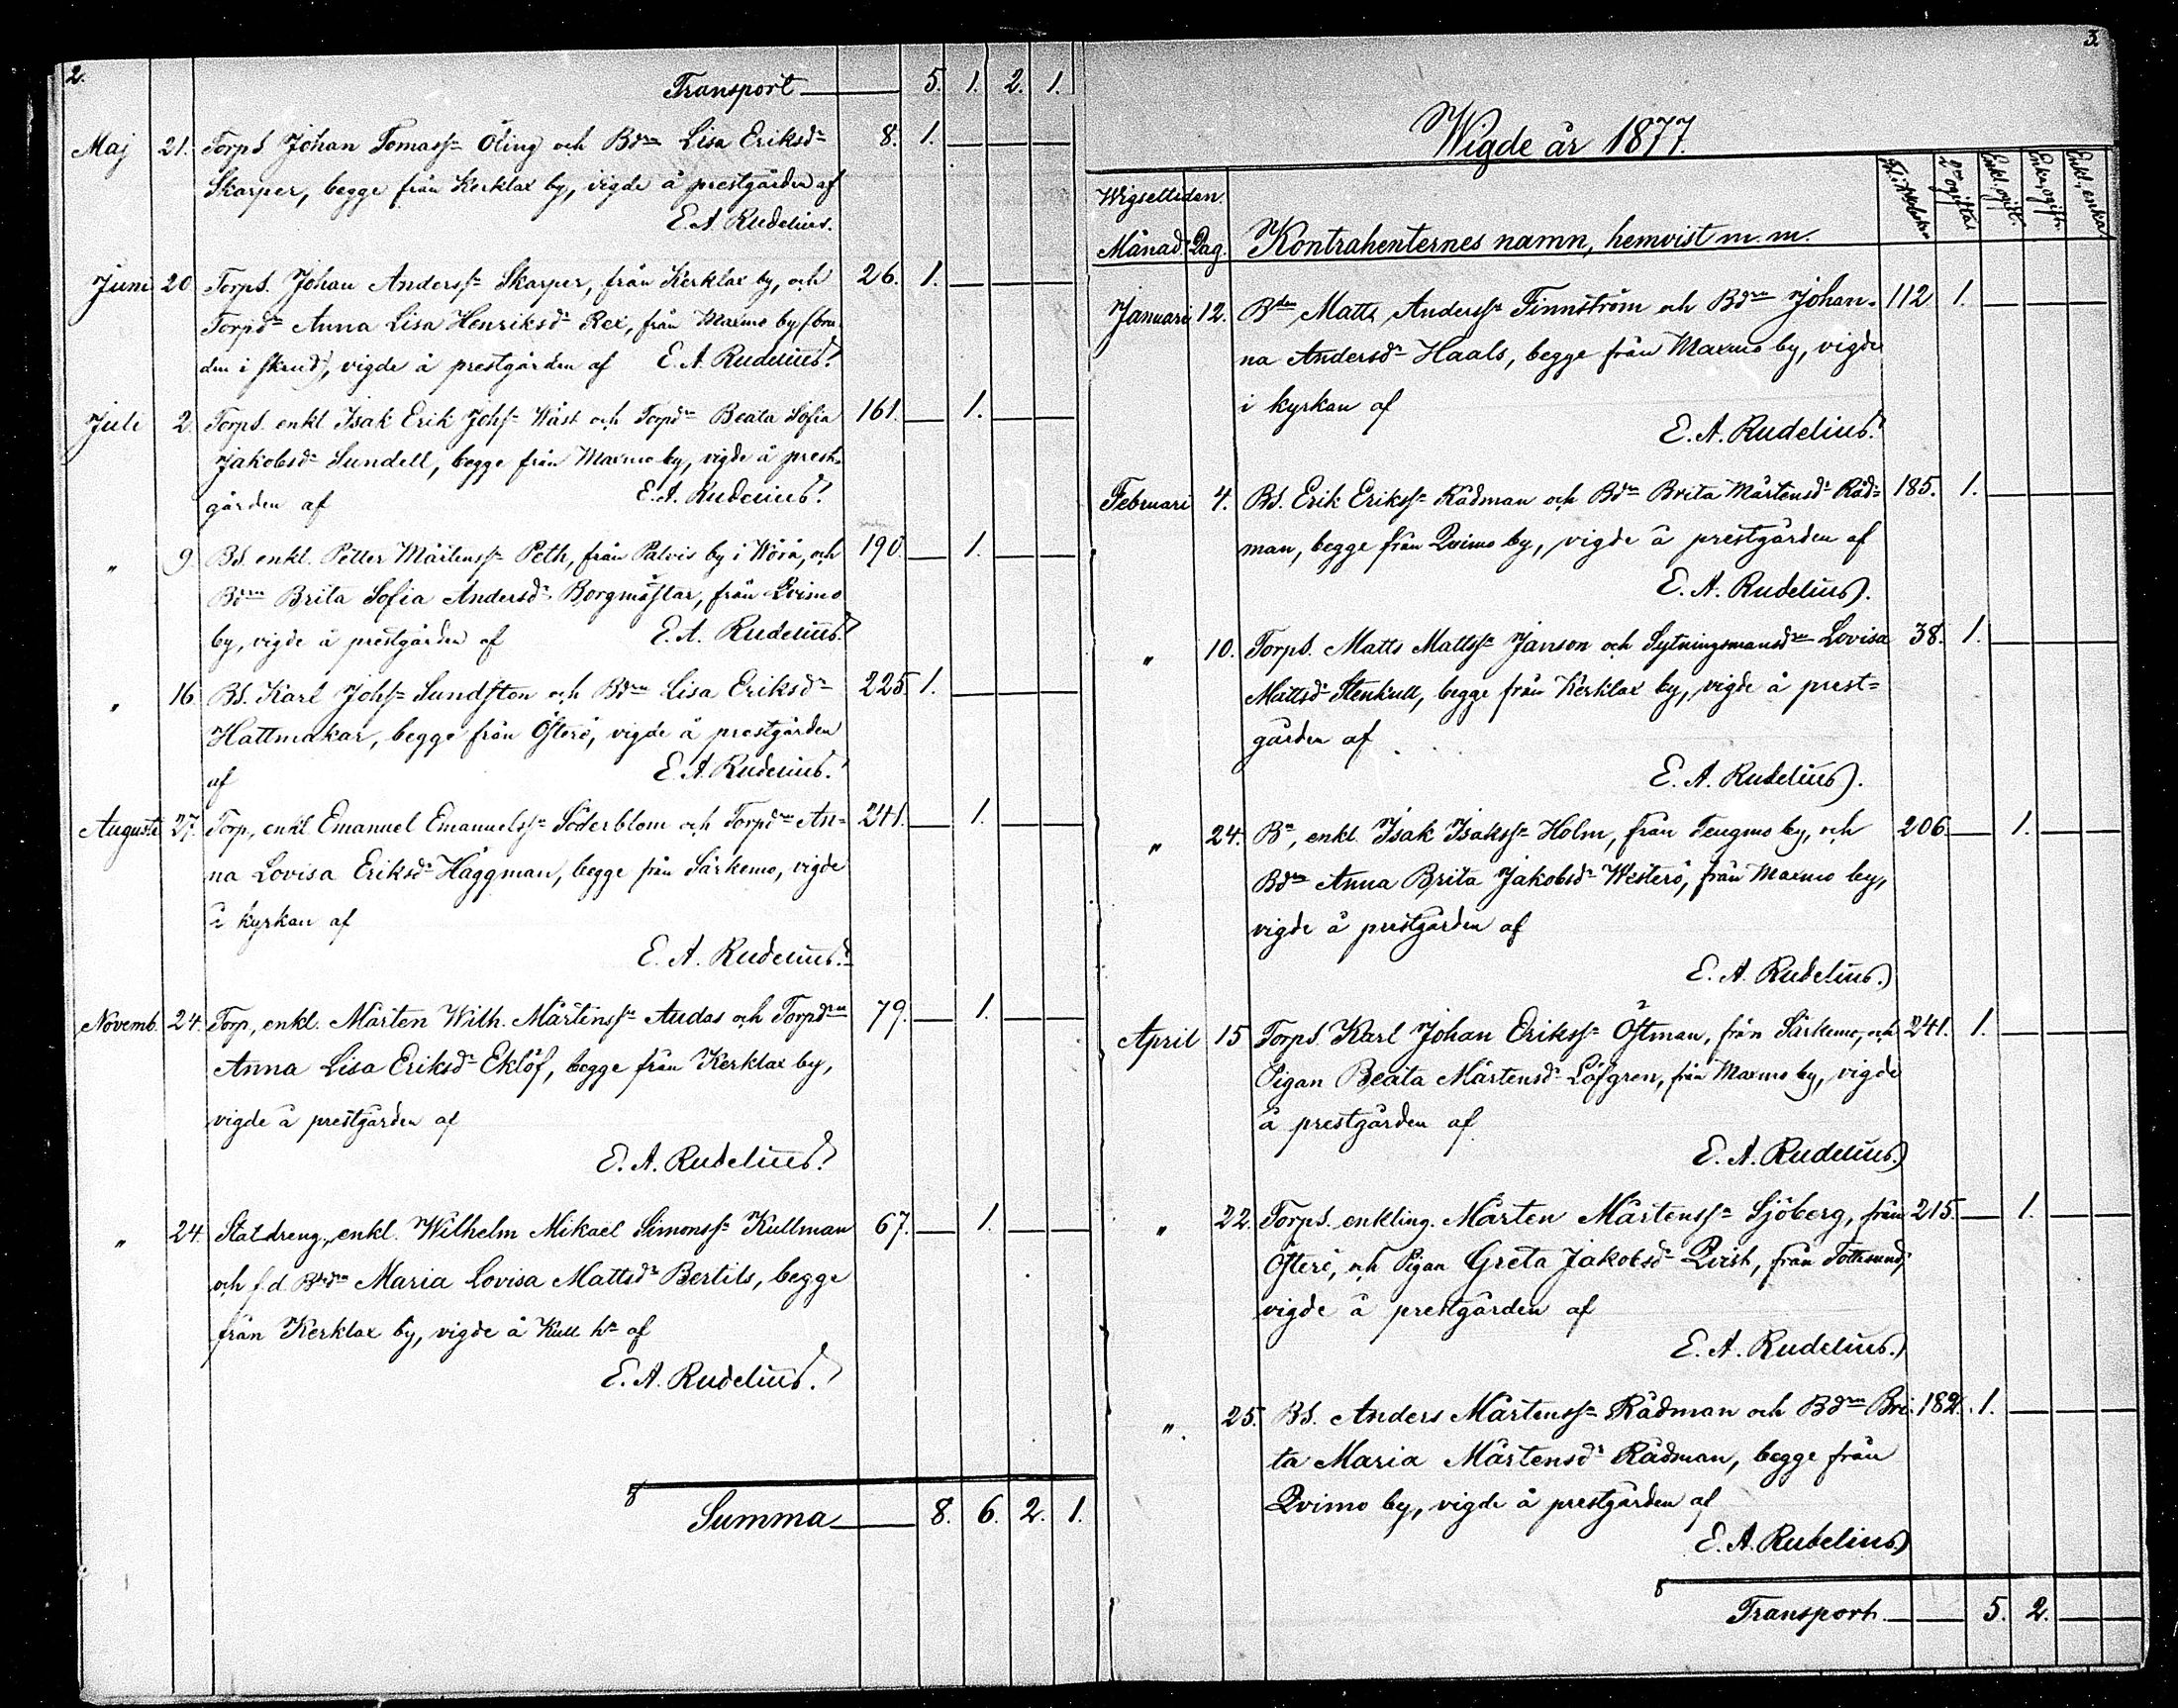 2.
Transport 5. 1. 2. 1.
Maj 21. Torps Johan Tomass:n Öling och Bd:rn Lisa Eriksd:r 8. 1. — — —
Skarper, begge från Kerklax by, vigde å prestgården af
E. A. Rudelius.
Juni 20 Torps. Johan Anderss:n Skarper, från Kerklax by, och 26. 1. — — —
Torpd:n Anna Lisa Henriksd:r Rex, från Maxmo by (bru-
den i skrud), vigde å prestgården af E. A. Rudelius.
Juli 2. Torps. enkl Isak Erik Johs:n Wäst och Torpd:rn Beata Sofia 161. — 1. — —
Jakobsd:r Sundell, begge från Maxmo by, vigde å prest-
gården af E. A. Rudelius.
" 9. Bs. enkl. Petter Mårtenss:n Peth, från Palvis by i Wörå, och 190. — 1. — —
Bd:rn Brita Sofia Andersd:r Borgmästar, från Qvimo
by, vigde å prestgården af E. A. Rudelius.
" 16. Bs. Karl Johs:n Sundsten och Bd:rn Lisa Eriksd:r 225. 1. — — —
Hattmakar, begge från Österö, vigde å prestgården
af E. A. Rudelius.
Augusti 27. Torp, enkl Emanuel Emanuelss:n Söderblom och Torpd:rn An- 241. — 1. — —
na Lovisa Eriksd:r Häggman, begge från Särkemo, vigde
i kyrkan af
E. A. Rudelius.
Novemb. 24. Torp, enkl. Mårten Wilh. Mårtinss:n Audas och Torpd:rn 79. — 1. — —
Anna Lisa Eriksd:r Eklöf, begge från Kerklax by,
vigde å prestgården af
E. A. Rudelius.
" 24. Statdreng., enkl. Wilhelm Mikael Simonss:n Kullman 67. — 1. — —
och f d Maria Lovisa Mattsd:r Bertils, begge
från Kerklax by, vigde å Kull h:n af
E. A. Rudelius.
Summa 8. 6. 2. 1.
3.
Wigde år 1877.
Wigseltiden.
Månad. Dag. Kontrahenternes namn, hemvist m. m. 2:ne ogifta Enkl. ogift. Enka, ogift. Enkl., enka.
Januari 12. Bd:n Matts Anderss:n Finnström och Bd:rn Johan- 112 1. — — —
na Andersd:r Haals, begge från Maxmo by, vigde
i kyrkan af
E. A. Rudelius.
Februari 4. Bs. Erik Erikss:n Rådman och Bd:rn Brita Mårtensd:r Råd- 185. 1. — — —
man, begge från Qvimo by, vigde å prestgården af
E. A. Rudelius.
" 10. Torps. Matts Mattss:n Janson och Sytningsmansd:rn Lovisa 38. 1. — — —
Mattsd:r Stenkull, begge från Kerklax by, vigde å prest-
gården af
E. A. Rudelius.
" 24. B:n, enkl. Isak Isakss:n Holm, från Teugmo by, och 206. — 1. — —
Bd:rn Anna Brita Jakobsd:r Westerö, från Maxmo by,
vigde å prestgården af
E. A. Rudelius.
April 15 Torps. Karl Johan Erikss:n Östman, från Särkemo, och 241. 1. — — —
Pigan Beata Mårtensd:r Löfgren, från Maxmo by, vigde
å prestgården af
E. A. Rudelius.
" 22. Torps. enkling. Mårten Mårtenss:n Sjöberg, från 215. — 1. — —
Österö, och Pigan Greta Jakobsd:r Qvist, från Tottesund,
vigde å prestgården af
E. A. Rudelius.
" 25. Bs. Anders Mårtenss:n Rådman och Bd:rn Bri- 182. 1. — — —
ta Maria Mårtensd:r Rådman, begge från
Qvimo by, vigde å prestgården af
E. A. Rudelius.
Transport 5. 2. — —